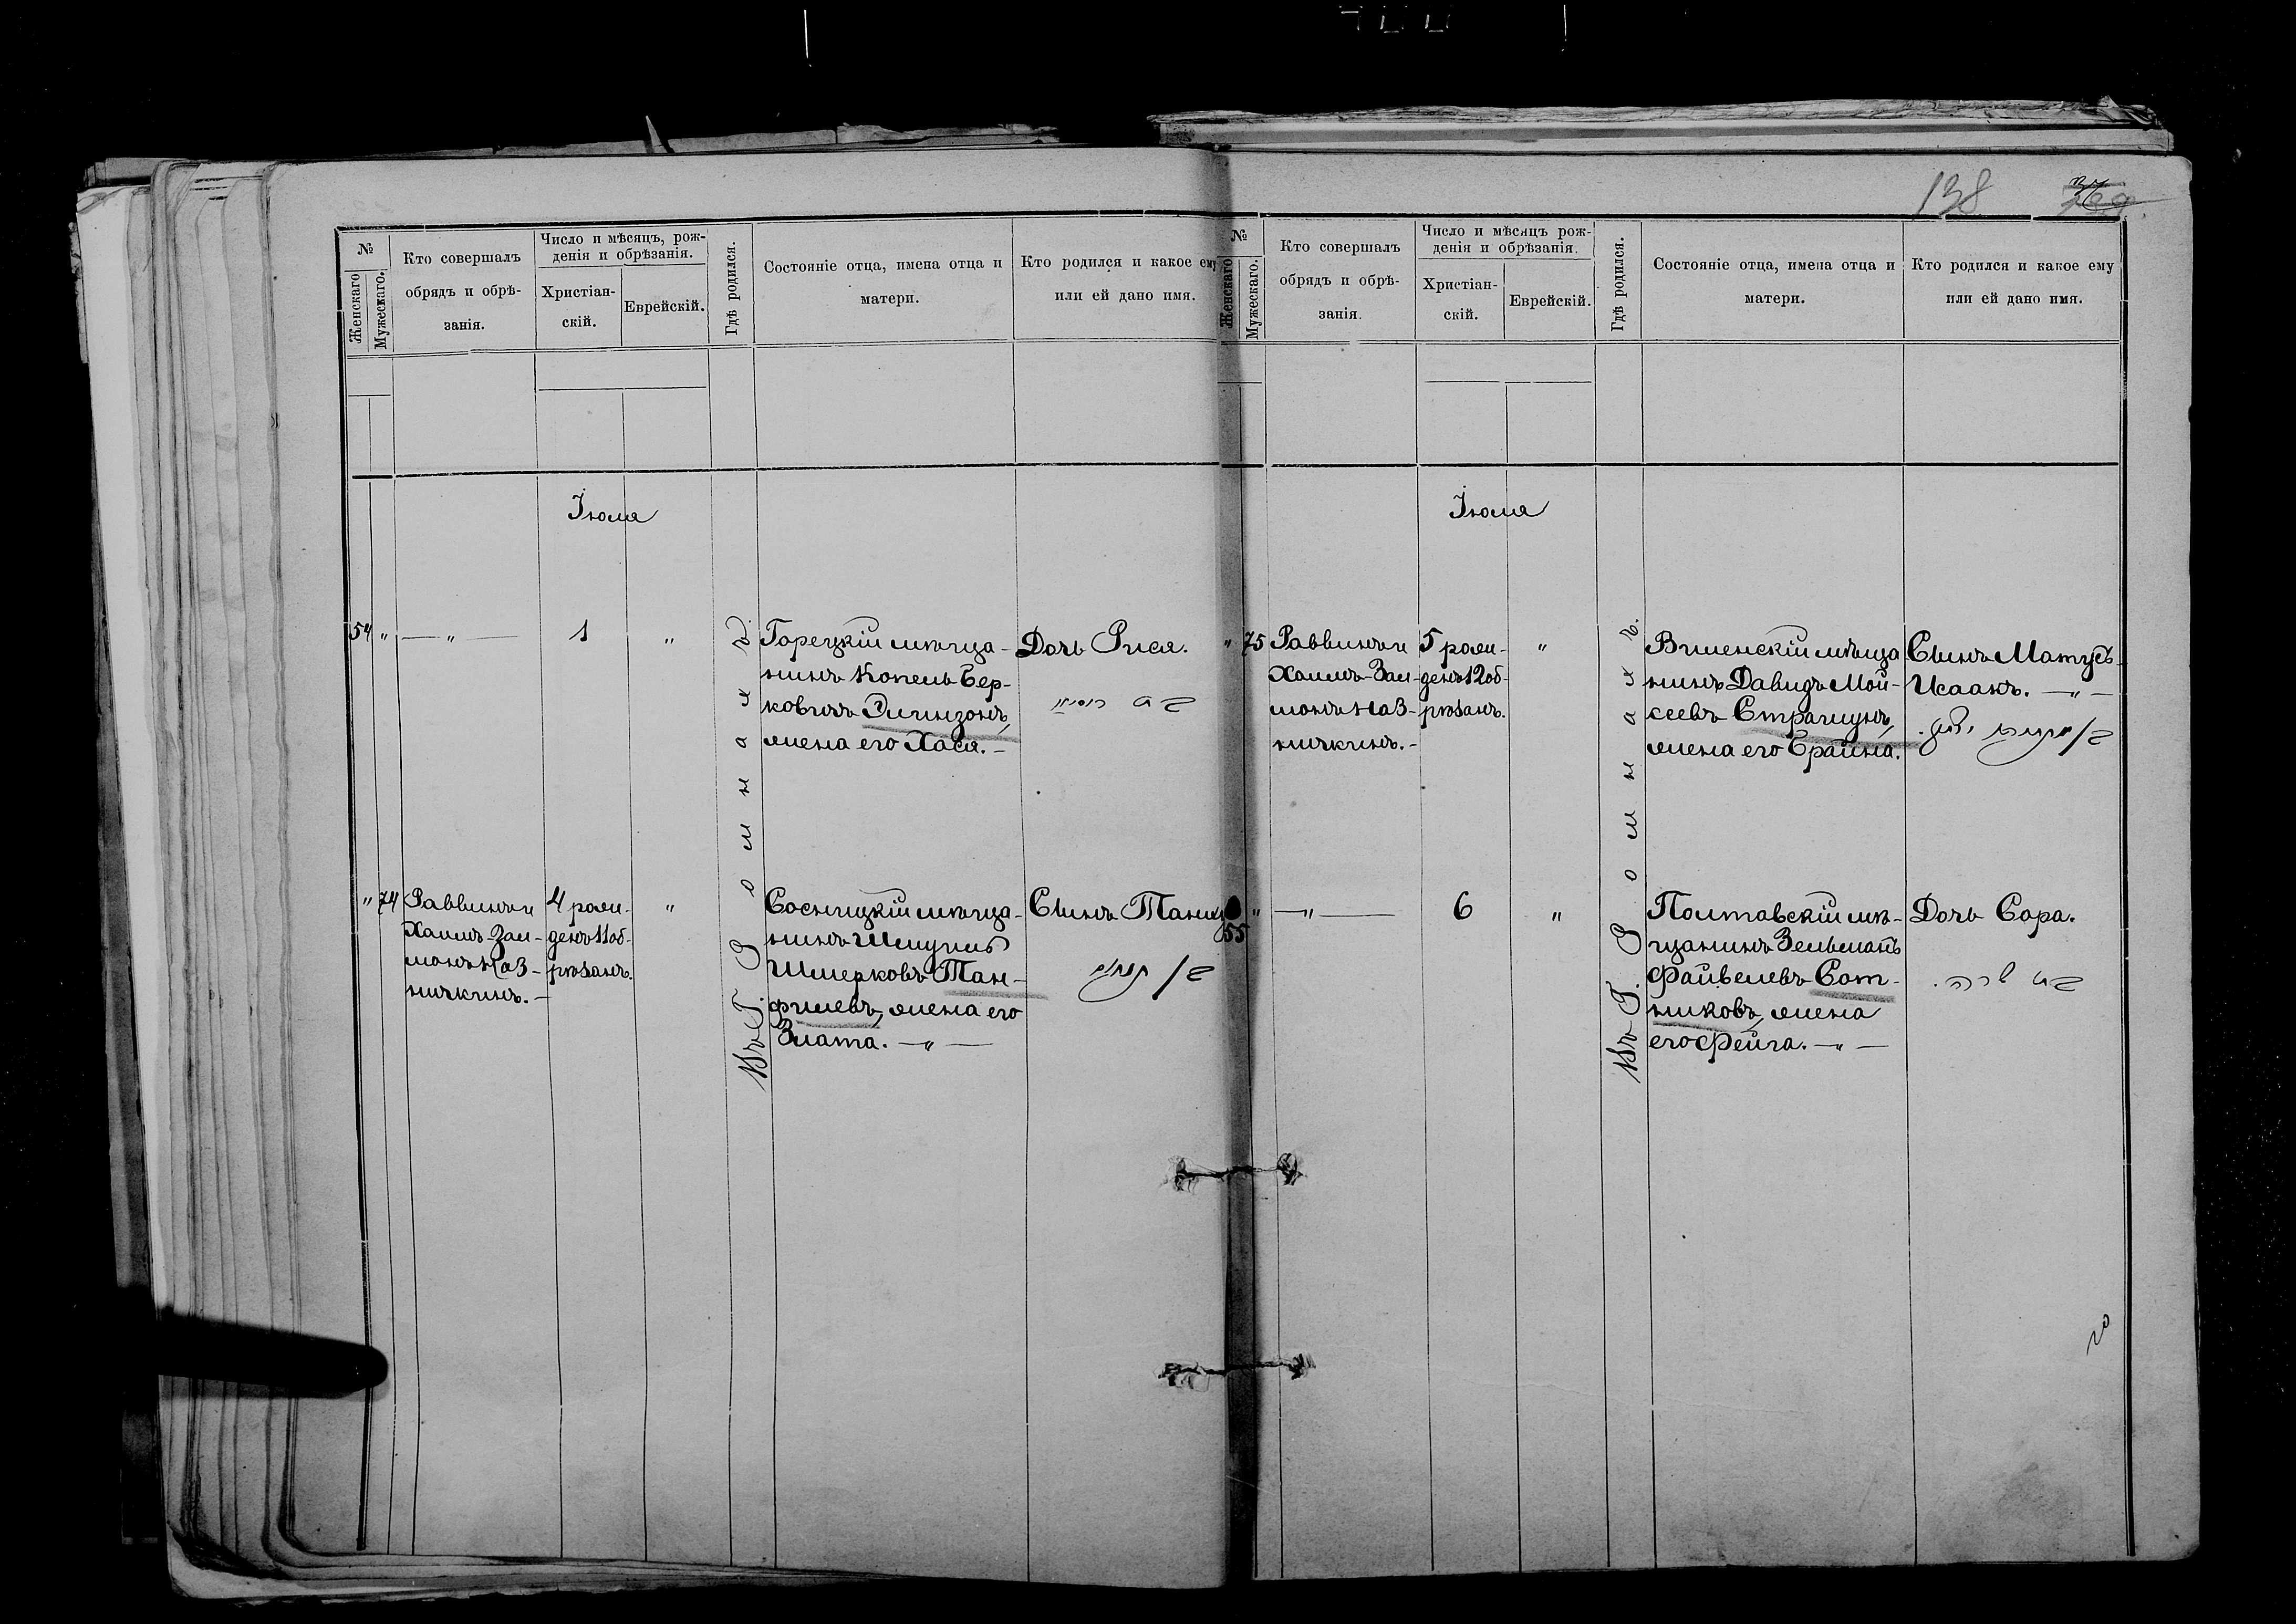 138
№
Женскаго
Мужескаго.
Кто совершалъ
обрядъ и обрѣ-
занія.
Число и мѣсяцъ, рож-
денія и обрѣзанія.
Христіан-
скій.
Еврейскій.
Гдѣ родился.
Состояніе отца, имена отца и
матери.
Кто родился и какое ему
или ей дано имя.
Іюля
54 " — " —
1
"
Въ г. Ромнахъ.
Горецкій мѣща-
нинъ Копель Бер-
ковичъ Эльинзонъ,
жена его Хася. —
Дочь Рися.
" 74
Раввинъ и
Хаимъ-Зал-
монъ Каз-
ничкинъ. —
4 рож-
денъ 11 об-
рѣзанъ.
"
Сосницкій мѣща-
нинъ Шмуиль
Шмерковъ Тан-
филевъ, жена его
Злата. — " —
Сынъ Танху
№
Женскаго
Мужескаго.
Кто совершалъ
обрядъ и обрѣ-
занія.
Число и мѣсяцъ рож-
денія и обрѣзанія.
Христіан-
скій.
Еврейскій.
Гдѣ родился.
Состояніе отца, имена отца и
матери.
Кто родился и какое ему
или ей дано имя.
Іюля
" 75
Раввинъ и
Хаимъ-Зал-
монъ Каз-
ничкинъ. —
5 рож-
денъ 12 об-
рѣзанъ.
"
Въ г. Ромнахъ.
Виленскій мѣща
нинъ Давидъ Мой-
сеевъ Страшунъ,
жена его Брайна.
Сынъ Матусъ-
Исаакъ. — " —
55 " — " —
6
"
Полтавскій мѣ-
щанинъ Зельманъ
Файвелевъ Сот-
никовъ, жена
его Фейга. — " —
Дочь Сора.